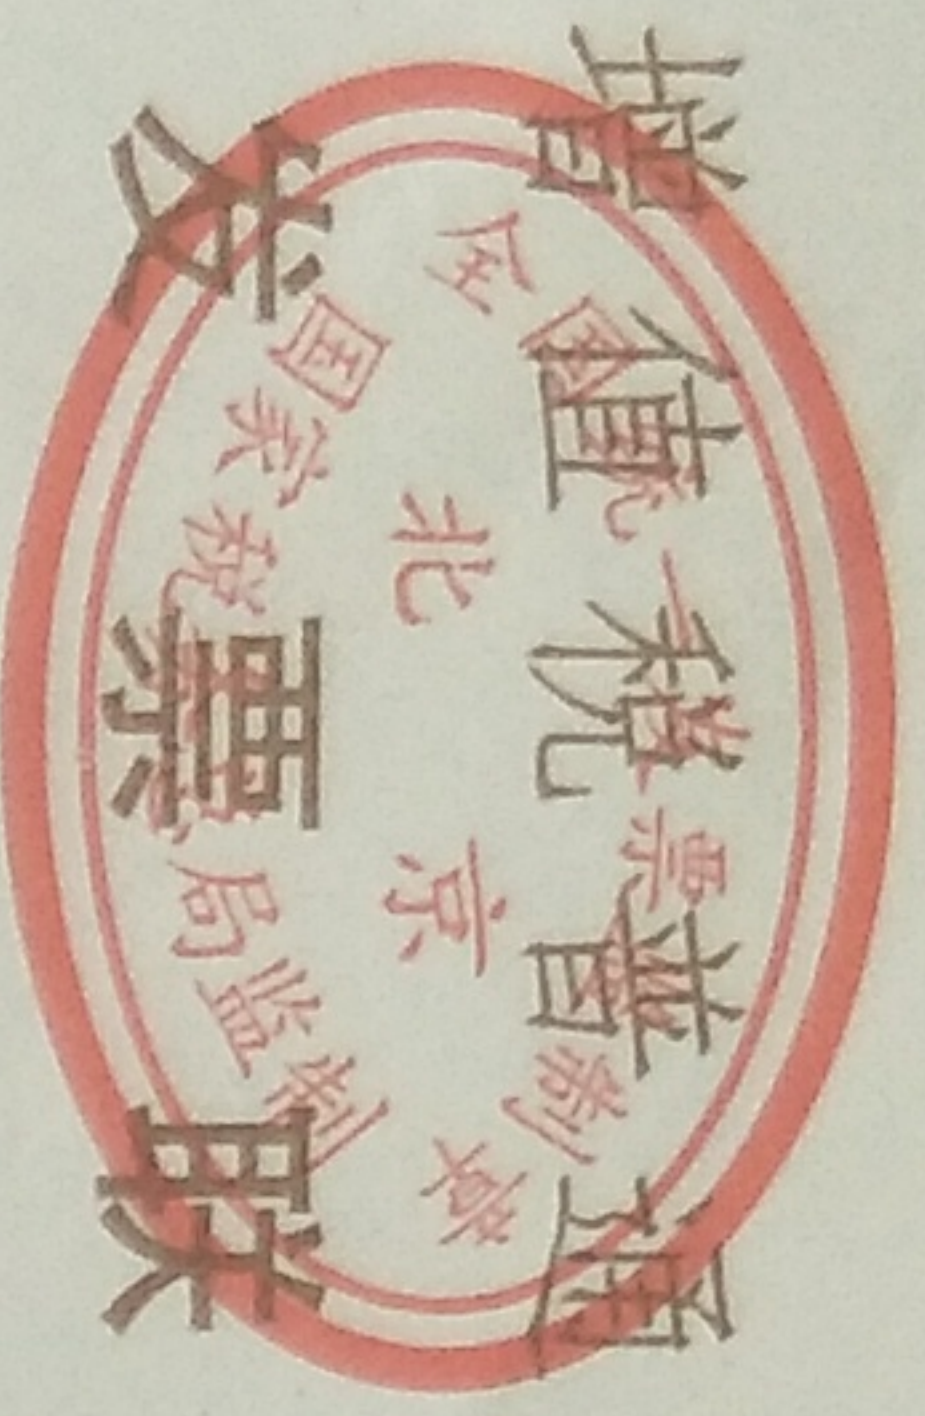 增值税普通
发票联
全国统一发票监制章
北京
国家税务总局监制